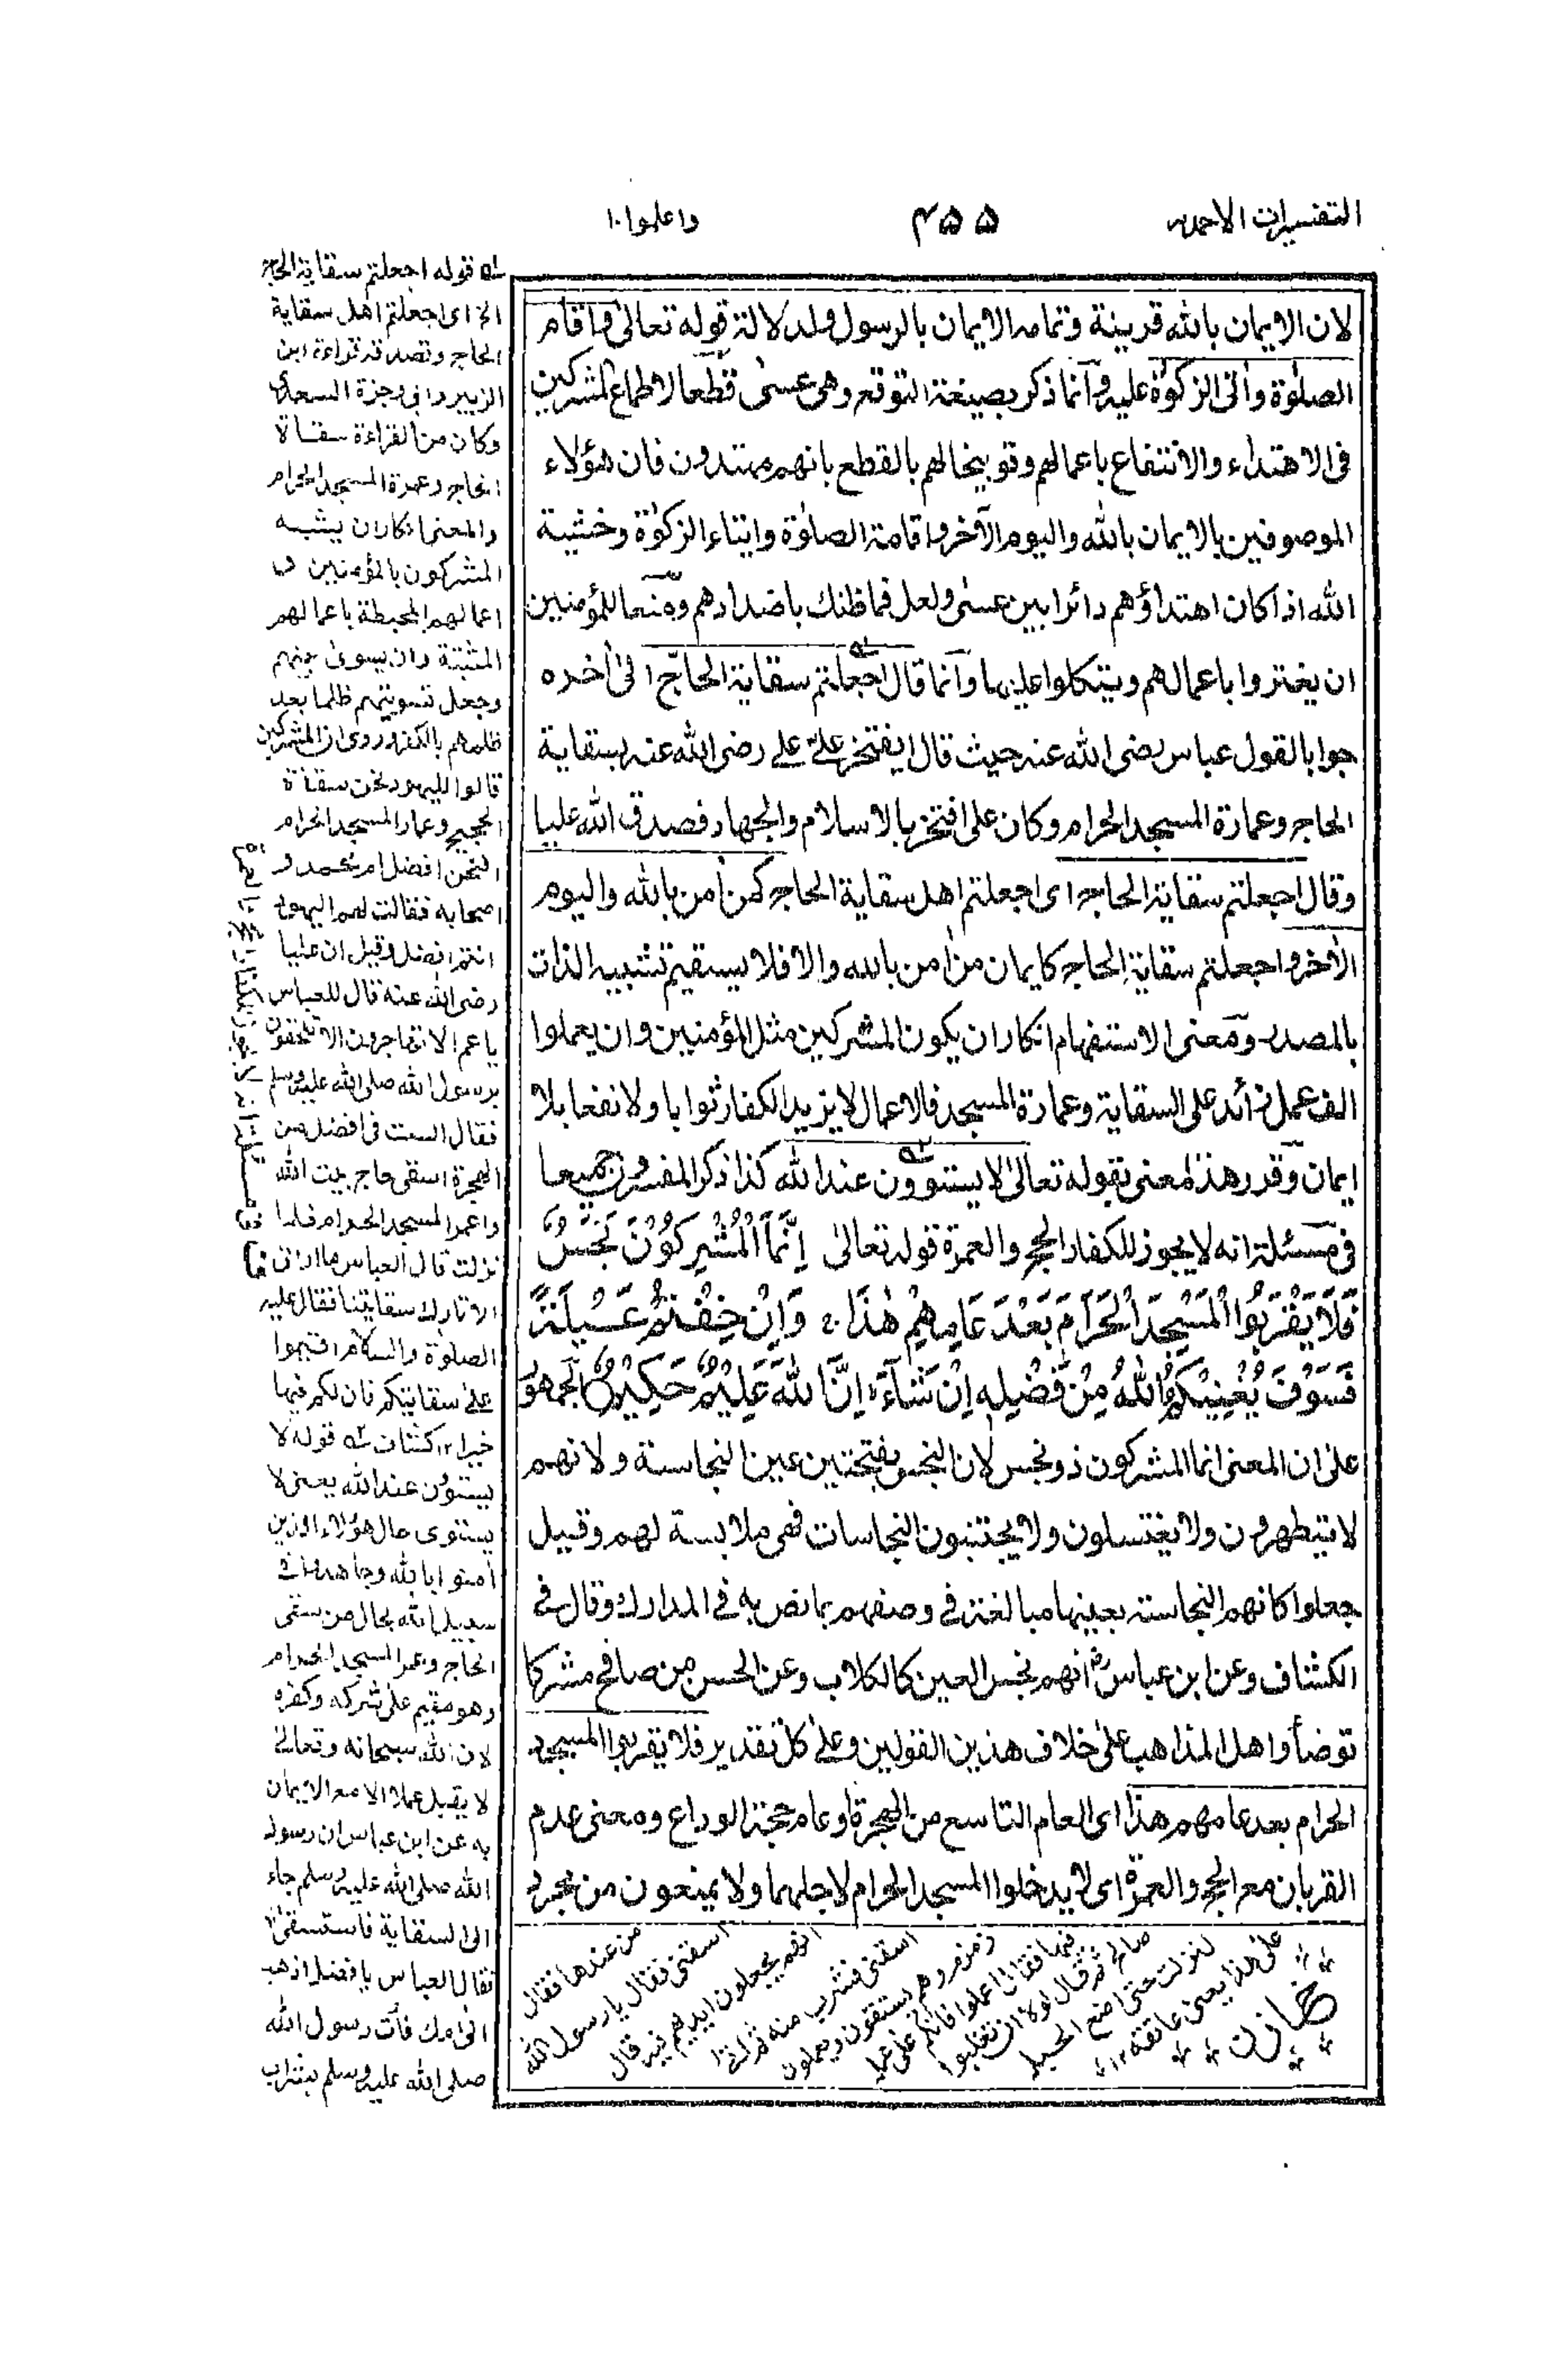 التفسيرات الاحمدية
۴۵۵
واعلموا ١٠
لان الايمان بالله قرينة وتمامه الايمان بالرسول ولدلالة قوله تعالى واقام
الصلوٰة واٰتى الزكوٰة عليه وانما ذكر بصيغة التوقع وهى عسىٰ قطعا لاطماع المشركين
فى الاهتداء والانتفاع باعمالهم وتوبيخا لهم بالقطع بانهم مهتدون فان هؤلاء
الموصوفين بالايمان بالله واليوم الآخر واقامة الصلوٰة وايتاء الزكوٰة وخشية
الله اذا كان اهتداؤهم دائرا بين عسىٰ ولعل فما ظنك باضدادهم ومنعا للمؤمنين
ان يغتروا باعمالهم ويتكلوا عليها وانما قال اجعلتم سقاية الحاجّ الى اٰخره
جوابا لقول عباس رضى الله عنه حيث قال ايفتخر علىّ على رضى الله عنه بسقاية
الحاج وعمارة المسجد الحرام وكان على افتخر بالاسلام والجهاد فصدق الله عليا
وقال اجعلتم سقاية الحاج اى اجعلتم اهل سقاية الحاج كمن اٰمن بالله واليوم
الاٰخر واجعلتم سقاية الحاج كايمان من اٰمن بالله والا فلا يستقيم تشبيه الذات
بالمصدر ومعنى الاستفهام انكار ان يكون المشركين مثل المؤمنين وان يعملوا
الف عمل زائد على السقاية وعمارة المسجد فالاعمال لا يزيد الكفار ثوابا ولا نفعا بلا
ايمان وقدر هذا المعنى بقوله تعالىٰ لا يستوون عند الله كذا ذكر المفسرون جميعا
فى مسئلة انه لا يجوز للكفار الحج والعمرة قوله تعالىٰ اِنَّمَا الْمُشْرِكُوْنَ نَجَسٌ
فَلَا يَقْرَبُوا الْمَسْجِدَ الْحَرَامَ بَعْدَ عَامِهِمْ هٰذَا وَاِنْ خِفْتُمْ عَيْلَةً
فَسَوْفَ يُغْنِيْكُمُ اللّٰهُ مِنْ فَضْلِهٖ اِنْ شَآءَ اِنَّ اللّٰهَ عَلِيْمٌ حَكِيْمٌ الجمهور
على ان المعنى انما المشركون ذو نجس لان النجس بفتحتين عين النجاسة ولانهم
لا يتطهرون ولا يغتسلون ولا يجتنبون النجاسات فهى ملابسة لهم وقيل
جعلوا كانهم النجاسة بعينها مبالغة فى وصفهم بها نص به فى المدارك وقال فى
الكشاف وعن ابن عباس رض انهم نجس العين كالكلاب وعن الحسن من صافح مشركا
توضأ واهل المذاهب على خلاف هذين القولين وعلى كل تقدير فلا يقربوا المسجد
الحرام بعد عامهم هذا اى العام التاسع من الهجرة او عام حجة الوداع ومعنى عدم
القربان مع الحج والعمرة اى لا يدخلوا المسجد الحرام لاجلهما ولا يمنعون من مجرد
له قوله اجعلتم سقاية الحاج
الخ اى اجعلتم اهل سقاية
الحاج وتصدقه قراءة ابن
الزبير وابى وجزة السعدى
وكان من القراءة سقاة
الحاج وعمرة المسجد الحرام
والمعنى انكار ان يشبه
المشركون بالمؤمنين و
اعمالهم المحبطة باعمالهم
المثبتة وان يسوى بينهم
وجعل تسويتهم ظلما بعد
ظلمهم بالكفر وروى ان المشركين
قالوا لليهود نحن سقاة
الحجيج وعمار المسجد الحرام
افنحن افضل ام محمد و
اصحابه فقالت لهم اليهود
انتم افضل وقيل ان عليا
رضى الله عنه قال للعباس
يا عم الا تهاجرون الا تلحقون
برسول الله صلى الله عليه وسلم
فقال الست فى افضل من
الهجرة اسقى حاج بيت الله
واعمر المسجد الحرام فلما
نزلت قال العباس ما ارانى
الا تارك سقايتنا فقال عليه
الصلوٰة والسلام اقيموا
على سقايتكم فان لكم فيها
خيرا ١٢ كشاف ٢ه قوله لا
يستوون عند الله يعنى لا
يستوى حال هؤلاء الذين
اٰمنوا بالله وجاهدوا فى
سبيل الله بحال من سقى
الحاج وعمر المسجد الحرام
وهو مقيم على شركه وكفره
لان الله سبحانه وتعالى
لا يقبل عملا الا مع الايمان
به عن ابن عباس ان رسول
الله صلى الله عليه وسلم جاء
الى السقاية فاستسقىٰ
فقال العباس يا فضل اذهب
الى امك فأت رسول الله
صلى الله عليه وسلم بشراب
من عندها فقال
اسقنى فقال يا رسول الله
انهم يجعلون ايديهم فيه قال
اسقنى فشرب منه ثم اتى
زمزم وهم يستقون ويعملون
فيها فقال اعملوا فانكم على عمل
صالح ثم قال لولا ان تغلبوا
لنزلت حتى اضع الحبل
على هذا يعنى عاتقه ١٢
خازن